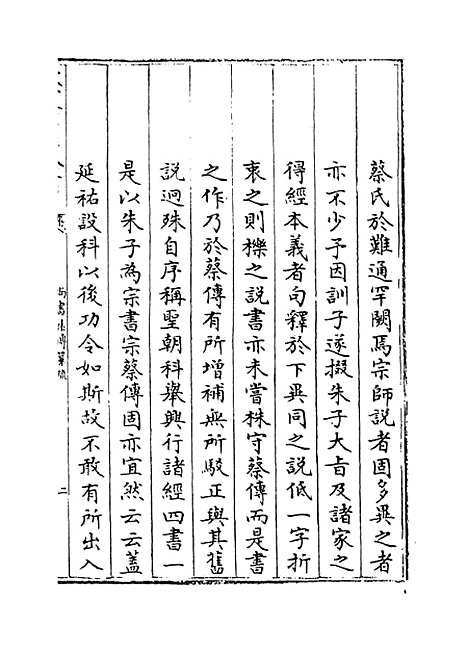 蔡氏於難通罕闕焉宗師說者固多異之者
亦不少予因訓子遂掇朱子大㫖及諸家之
得經本義者句釋於下異同之說低一字折
衷之則櫟之說書亦未嘗株守蔡傳而是書
之作乃於蔡傳有所增補無所駁正與其舊
說迥殊自序稱聖朝科舉興行諸經四書一
是以朱子為宗書宗蔡傳固亦宜然云云蓋
延祐設科以後功令如斯故不敢有所出入
尚書集傳纂疏
二